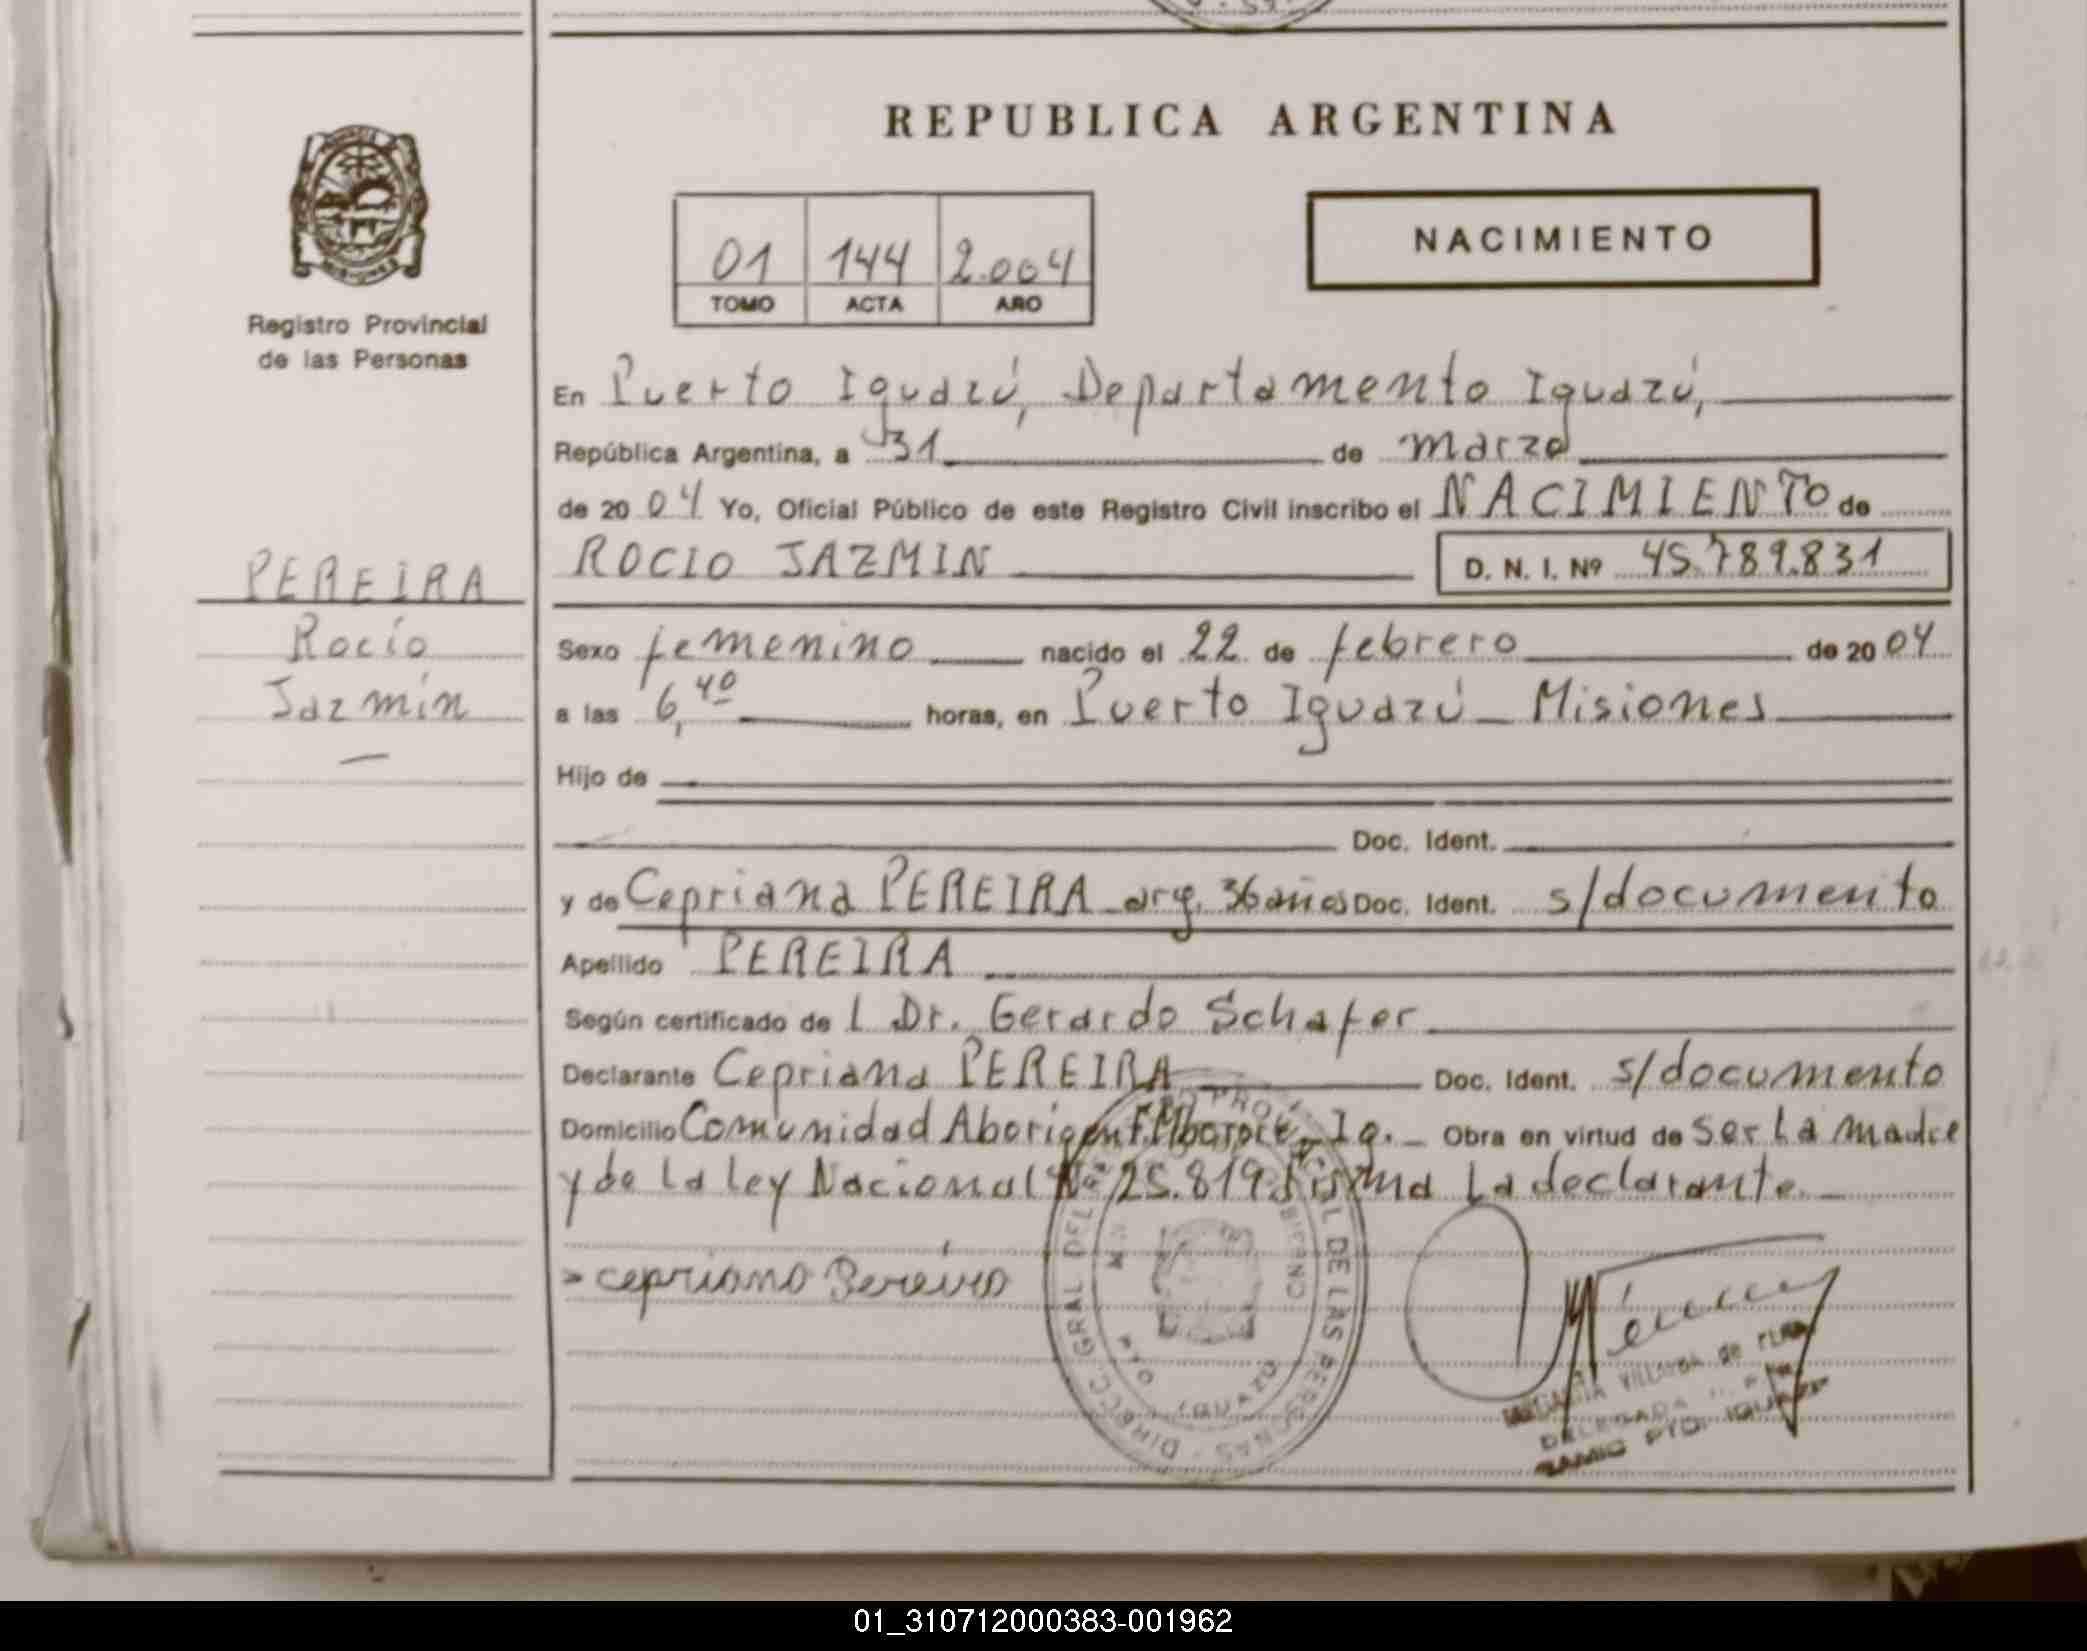 REPUBLICA ARGENTINA
Registro Provincial
de las Personas
01 144 2.004
TOMO ACTA AÑO
NACIMIENTO
En Puerto Iguazú, Departamento Iguazú,
República Argentina, a 31 de marzo
de 20 04 Yo, Oficial Público de este Registro Civil inscribo el NACIMIENTO de
ROCIO JAZMIN D. N. I. Nº 45.789.831
PEREIRA
Rocío
Jazmín
Sexo femenino nacido el 22 de febrero de 20 04
a las 6,40 horas, en Puerto Iguazú - Misiones
Hijo de
Doc. Ident.
y de Cepriana PEREIRA arg. 36 años Doc. Ident. s/documento
Apellido PEREIRA
Según certificado de l Dr. Gerardo Schafer
Declarante Cepriana PEREIRA Doc. Ident. s/documento
Domicilio Comunidad Aborigen F. Mbororé - Ig. - Obra en virtud de ser la madre
y de la ley Nacional Nº 25.819 firma la declarante. -
cepriano Pereira
DIRECC. GRAL DEL PROVINCIAL DE LAS PERSONAS
PTO IGUAZU
VILLALBA de
DELEGADA
PTO. IGUAZU
01_310712000383-001962